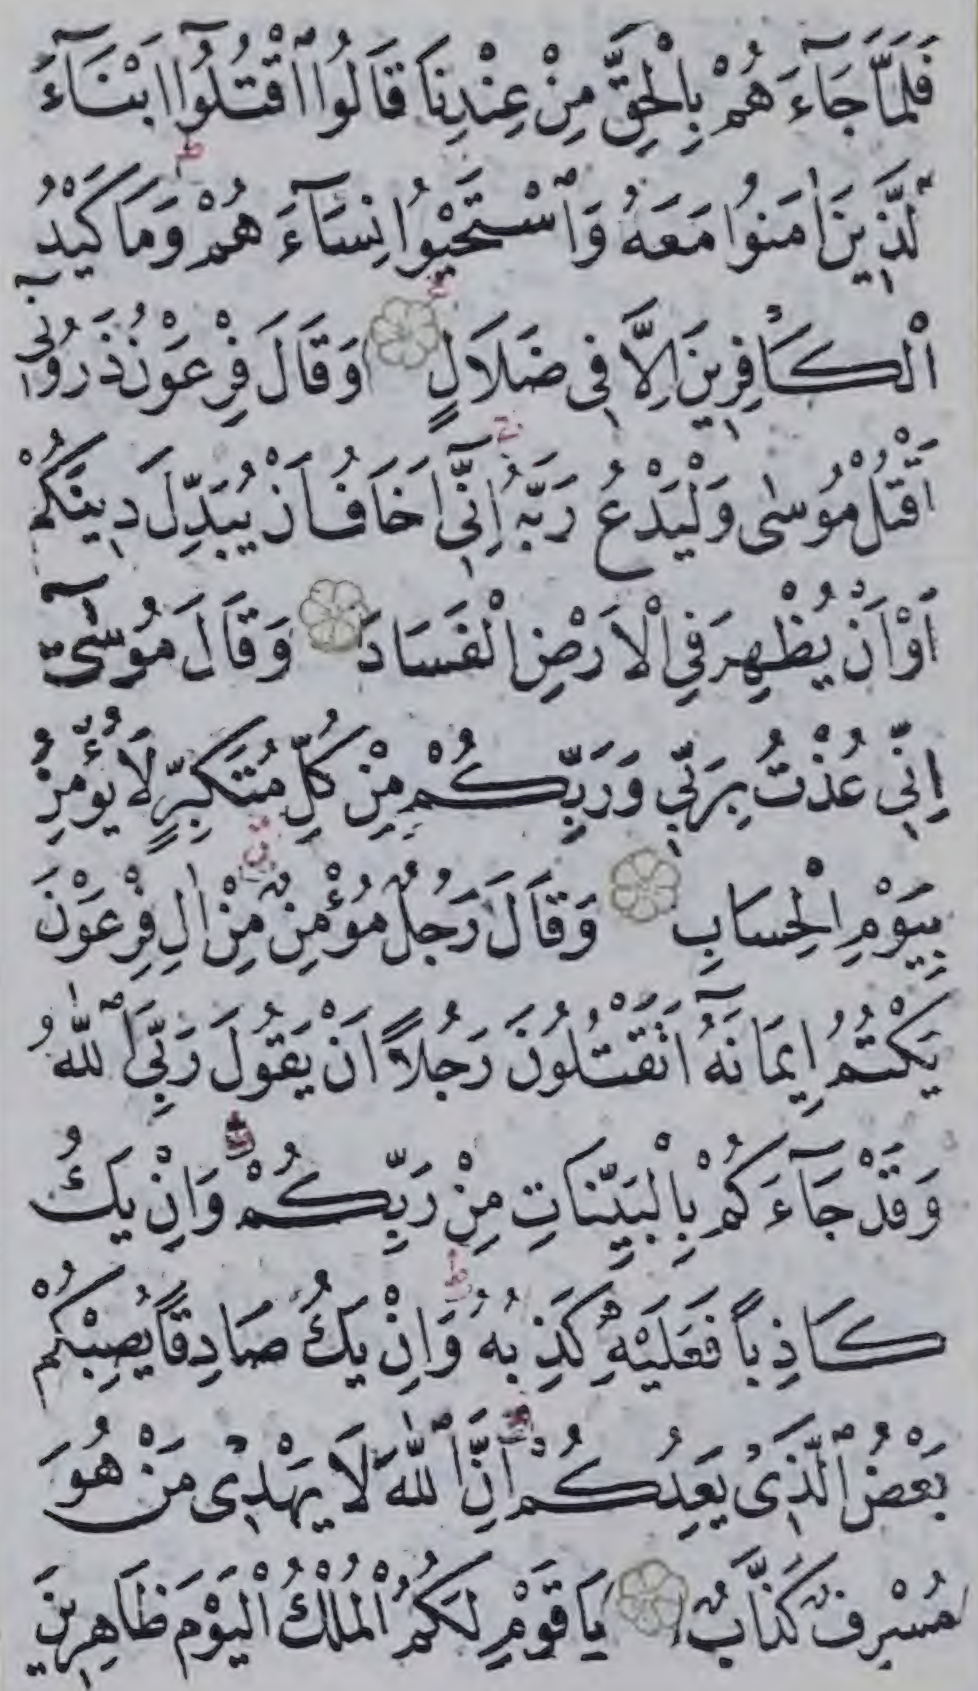 فَلَمَّا جَآءَ هُمْ بِالْحَقِّ مِنْ عِنْدِنَا قَالُوا اقْتُلُوٓا اَبْنَآءَ
لَّذِينَ اٰمَنُوا مَعَهُ وَاسْتَحْيُوا نِسَآءَ هُمْ وَمَا كَيْدُ
الْكَافِرِينَ اِلَّا فِى ضَلَالٍ وَقَالَ فِرْعَوْنُ ذَرُونِٓى
اَقْتُلْ مُوسٰى وَلْيَدْعُ رَبَّهُ اِنِّٓى اَخَافُ اَنْ يُبَدِّلَ دِينَكُمْ
اَوْ اَنْ يُظْهِرَ فِى الْاَرْضِ الْفَسَادَ وَقَالَ مُوسٰٓى
اِنِّى عُذْتُ بِرَبِّى وَرَبِّكُمْ مِنْ كُلِّ مُتَكَبِّرٍ لَا يُؤْمِنُ
بِيَوْمِ الْحِسَابِ وَقَالَ رَجُلٌ مُؤْمِنٌ مِنْ اٰلِ فِرْعَوْنَ
يَكْتُمُ اِيمَانَهُٓ اَتَقْتُلُونَ رَجُلًا اَنْ يَقُولَ رَبِّىَ اللّٰهُ
وَقَدْ جَآءَكُمْ بِالْبَيِّنَاتِ مِنْ رَبِّكُمْ وَاِنْ يَكُ
كَاذِبًا فَعَلَيْهِ كَذِبُهُ وَاِنْ يَكُ صَادِقًا يُصِبْكُمْ
بَعْضُ الَّذِى يَعِدُكُمْ اِنَّ اللّٰهَ لَا يَهْدِى مَنْ هُوَ
مُسْرِفٌ كَذَّابٌ يَا قَوْمِ لَكُمُ الْمُلْكُ الْيَوْمَ ظَاهِرِينَ